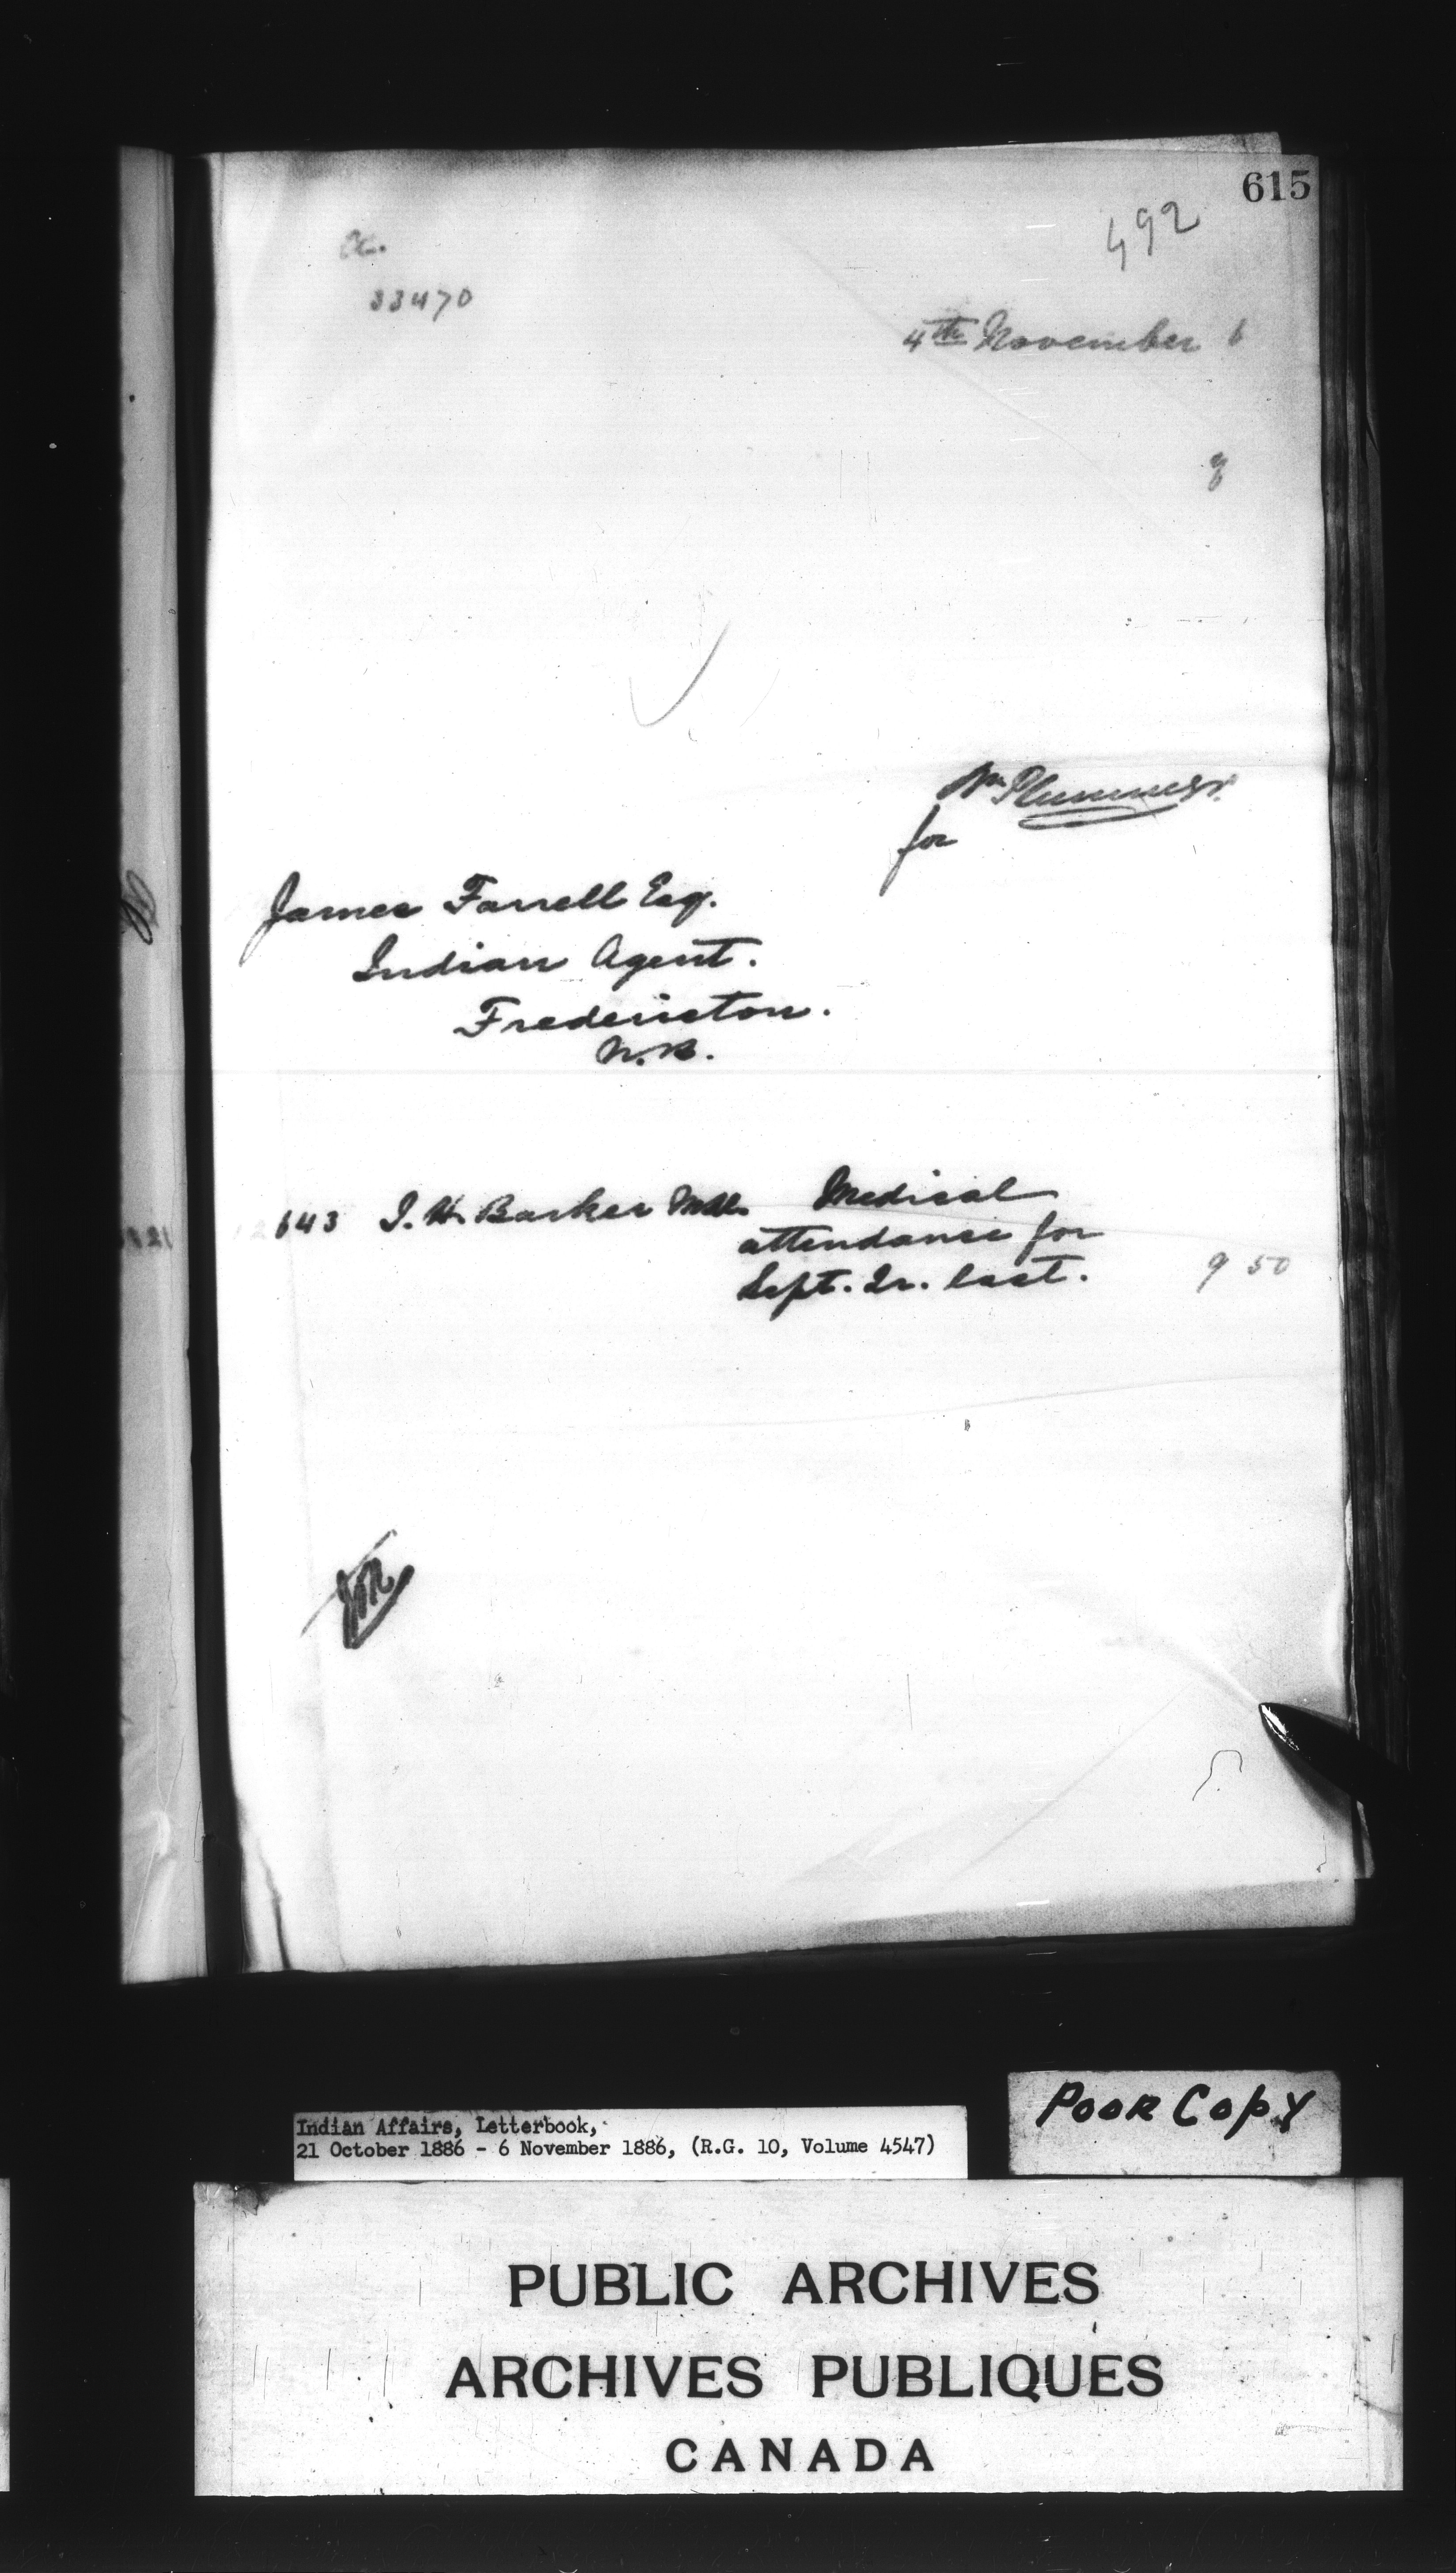 615
492
33470
4th November 6
Wm Plummer
for
James Farrell Esq.
Indian Agent.
Fredericton.
N.B.
643 J. H. Barker M.D. Medical
attendance for
Sept. Qr. last. 9 50
Poor Copy
Indian Affairs, Letterbook,
21 October 1886 - 6 November 1886, (R.G. 10, Volume 4547)
PUBLIC ARCHIVES
ARCHIVES PUBLIQUES
CANADA